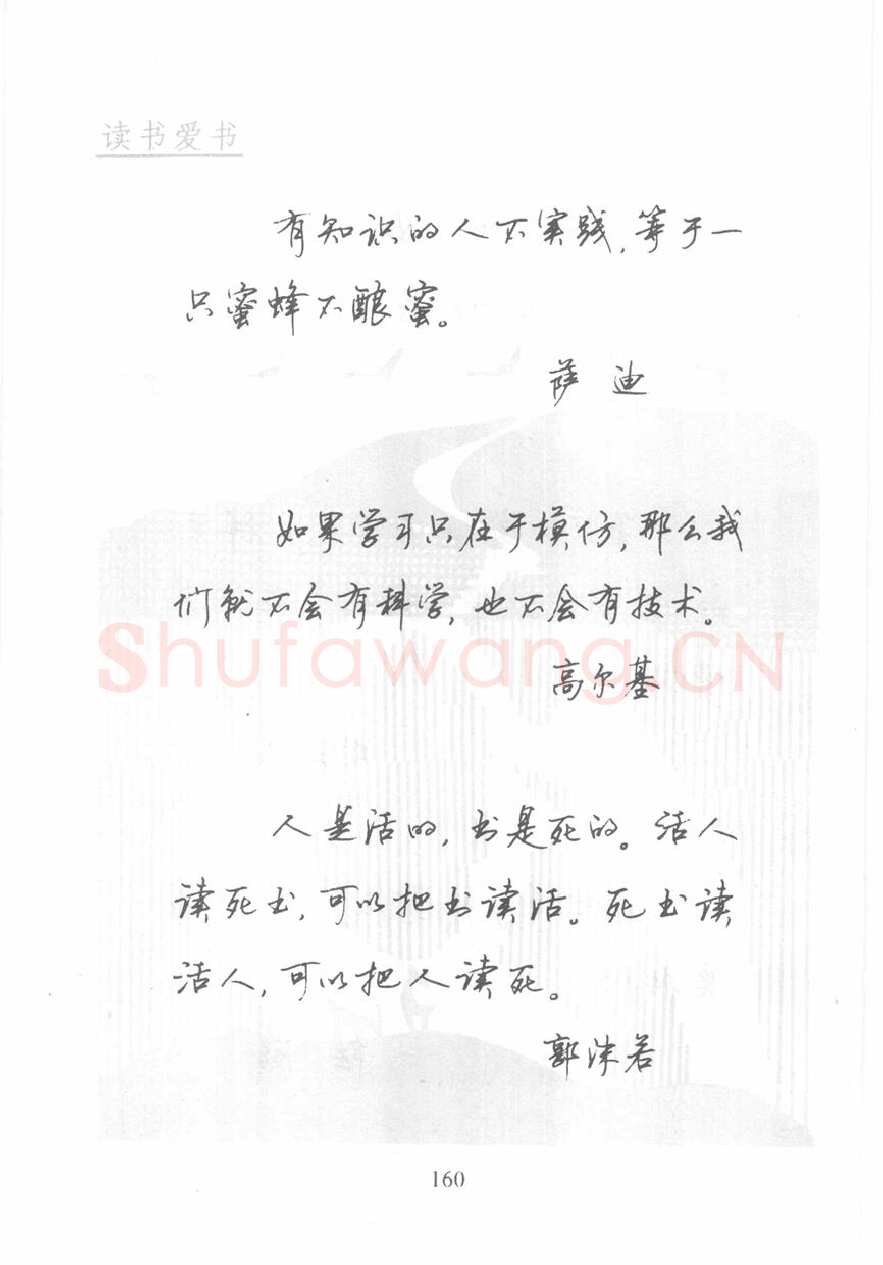 读书爱书
有知识的人不实践,等于一
只蜜蜂不酿蜜。
萨 迪
如果学习只在于模仿,那么我
们就不会有科学,也不会有技术。
Shufawang.CN
高尔基
人是活的,书是死的。活人
读死书,可以把书读活。死书读
活人,可以把人读死。
郭沫若
160